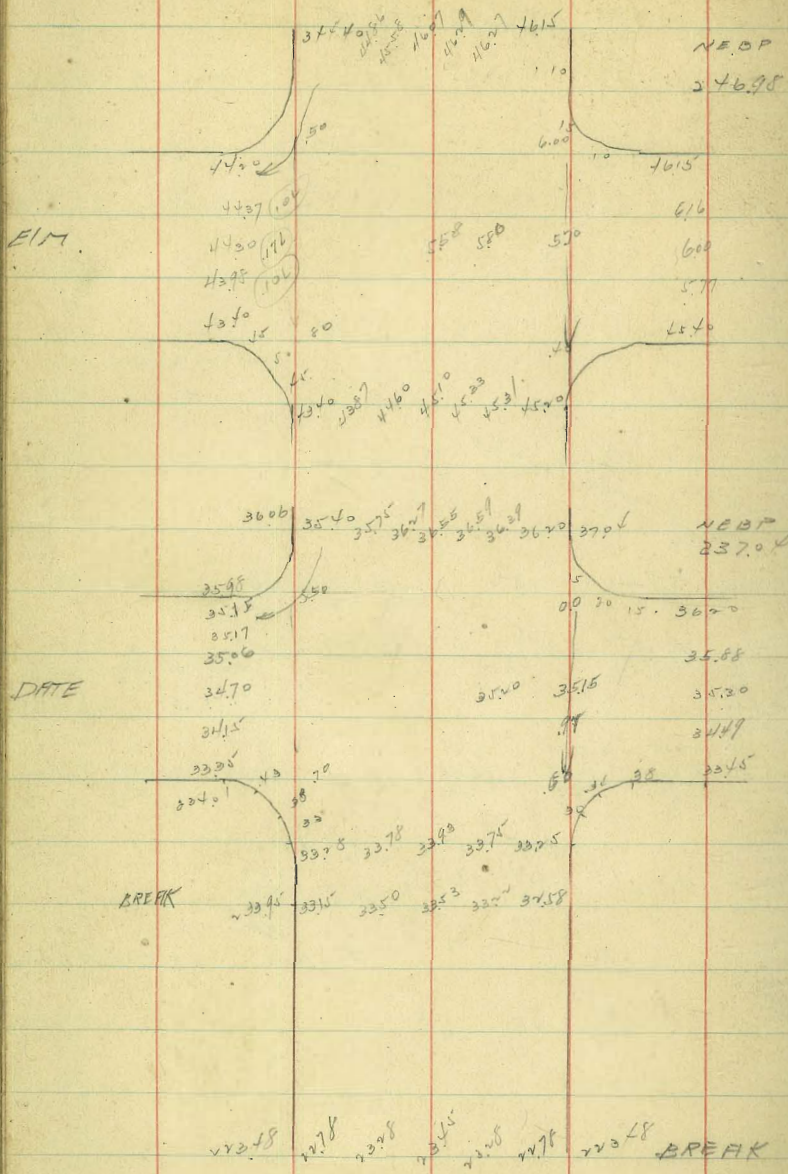 344.40 44.86 45.58 46.07 46.29 46.27 46.15
NE. BP
246.98
.10
.50
15
6.00
10
44.20
46.15
44.37 .04
6.16
ELM
44.30 .176
5.58 5.80 5.70
6.00
43.98 .104
5.77
43.40
45
80
.40
45.40
50
45
43.40 43.87 44.60 45.10 45.33 45.31 45.20
36.06
35.40 35.75 36.27 36.55 36.59 36.39 36.20
37.04
NE BP
237.04
35.98
5.50
5
35.18
00 30 15. 36.20
35.17
35.06
35.88
DATE
34.70
35.20 35.15
35.30
34.15
.97
34.49
33.95
.43
.70
.60
.34
38
33.45
33.40
38
33
30
33.28 33.78 33.93 33.75 33.25
BREAK
233.95 33.15 33.50 33.53 32.58
223.48 22.78 23.28 23.45 23.28 22.78 223.48 BREAK